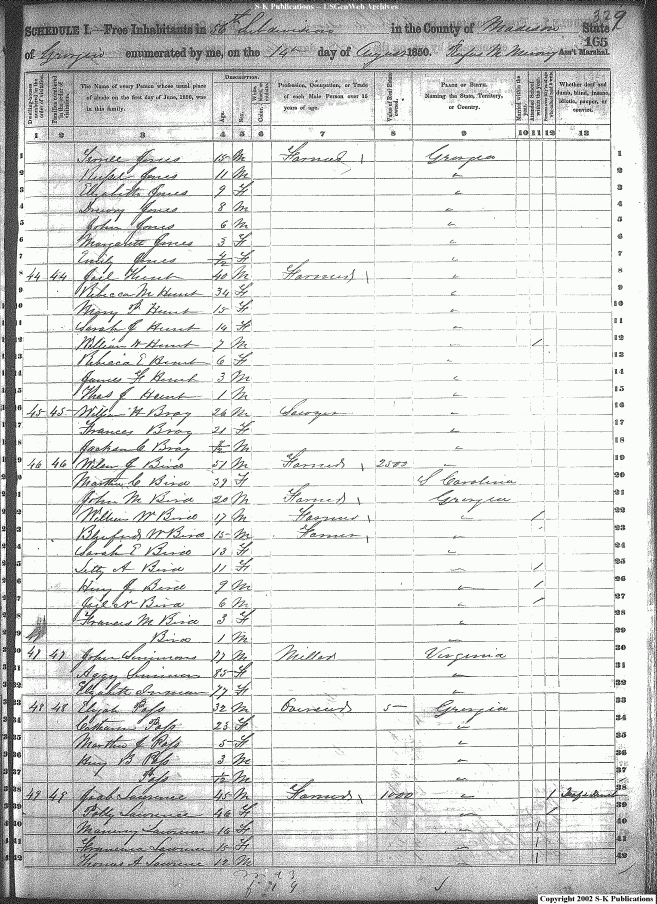 S-K Publications -- USGenWeb Archives
SCHEDULE I.—Free Inhabitants in 56th Subdivision in the County of Madison State 329
of Georgia enumerated by me, on the 14th day of August 1850. Ass't Marshal. 165
Dwelling-houses numbered in the order of visitation. Families numbered in the order of visitation. The Name of every Person whose usual place of abode on the first day of June, 1850, was in this family. DESCRIPTION. Age. Sex. Color, Profession, Occupation, or Trade of each Male Person over 15 years of age. Value of Real Estate owned. PLACE OF BIRTH. Naming the State, Territory, or Country. Married within the year. Whether deaf and dumb, blind, insane, idiotic, pauper, or convict.
1 2 3 4 5 6 7 8 9 10 11 12 13
1 Jones 15 M Farmer Georgia 1
2 Jones 11 M " 2
3 Elizabeth Jones 9 F " 3
4 Drewry Jones 8 M " 4
5 John Jones 6 M " 5
6 Margarett Jones 3 F " 6
7 Emily Jones F " 7
8 44 44 Joel Hunt 40 M Farmer " 8
9 Rebecca M Hunt 34 F " 9
10 Mary F Hunt 15 F " 10
11 Sarah J Hunt 14 F " 11
12 William H Hunt 7 M " 1 12
13 Rebecca E Hunt 6 F " 13
14 James F Hunt 3 M " 14
15 Thos J Hunt 1 M " 15
16 45 45 William H Bray 26 M Sawyer " 16
17 Frances Bray 21 F " 17
18 Jackson C Bray M " 18
19 46 46 Wilson J Bird 51 M Farmer 2500 " 19
20 Martha C Bird 39 F S Carolina 20
21 John M Bird 20 M Farmer Georgia 21
22 William W Bird 17 M Farmer " 1 22
23 Buford W Bird 15 M Farmer " 23
24 Sarah E Bird 13 F " 24
25 Letty A Bird 11 F " 1 25
26 Henry J Bird 9 M " 1 26
27 Joel N Bird 6 M " 1 27
28 Frances M Bird 3 F " 28
29 Bird 1 M " 29
30 47 47 John Simmons 77 M Miller Virginia 30
31 Aggy Simmons 85 F " 31
32 Elizabeth Inman 77 F " 32
33 48 48 Elijah Pass 32 M Overseer 5 Georgia 33
34 Catharine Pass 23 F " 34
35 Martha J Pass 5 F " 35
36 Henry B Pass 3 M " 36
37 Pass M " 37
38 49 49 Lawrence 45 M Farmer 1000 " 1 38
39 Polly Lawrence 46 F " 1 39
40 Lawrence 16 F " 1 40
41 Lawrence 15 F " 1 41
42 Thomas A Lawrence 12 M " 1 42
Copyright 2002 S-K Publications